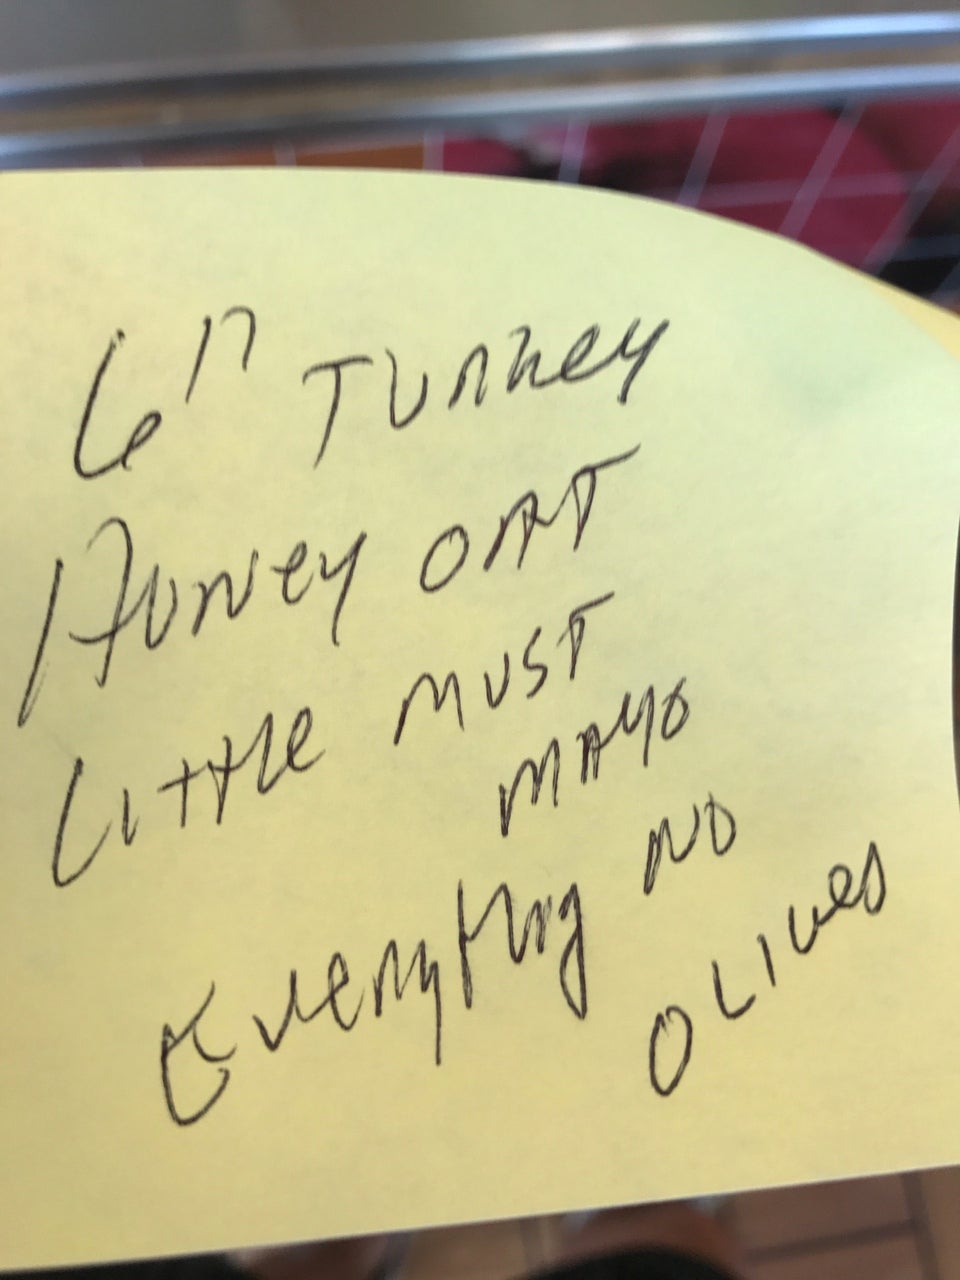 6" Turkey
Honey OAT
Little MUST
MAYO
Everything NO
OLIVES